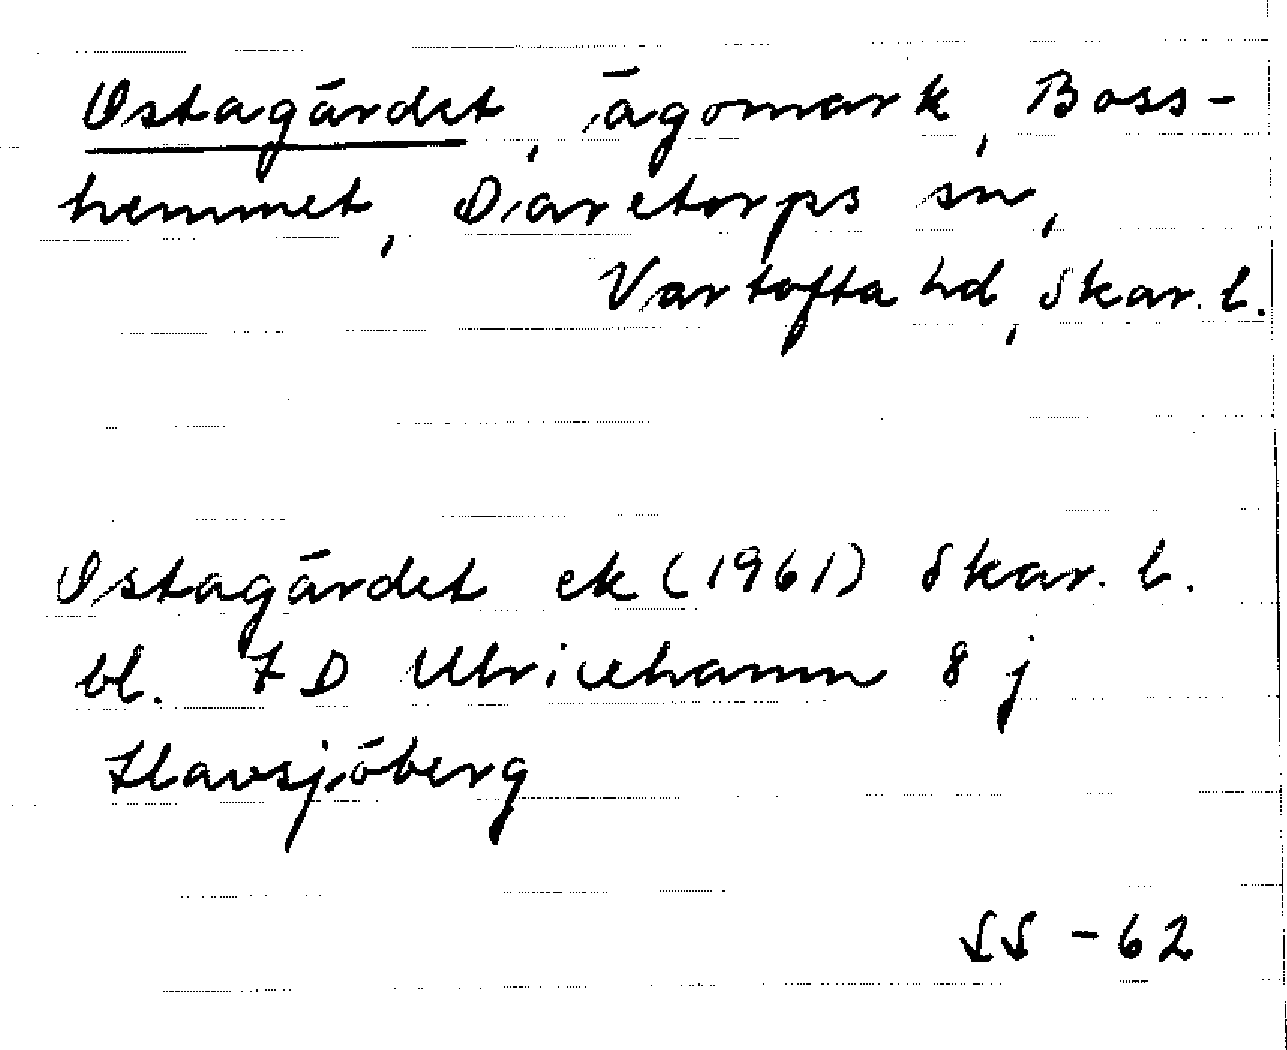 Östagärdet, ägomark, Boss-
hemmet, Daretorps sn,
Vartofta hd, Skar. l.
Östagärdet ek (1961) Skar. l.
bl. 7 D Ulricehamn 8 j
Havsjöberg
SS - 62